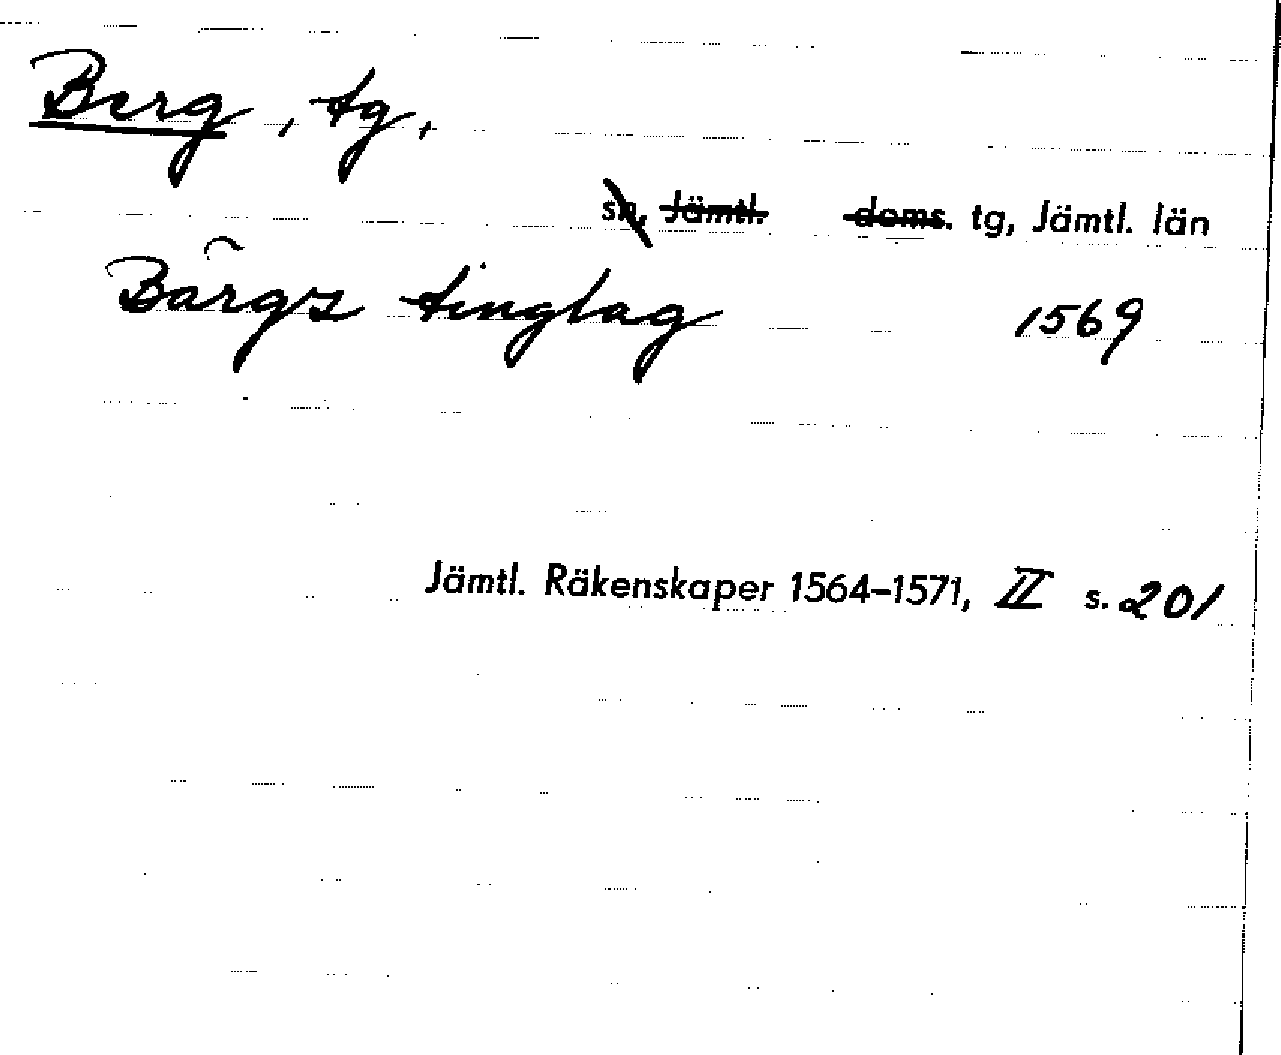 Berg, tg,
sn, Jämtl. doms. tg, Jämtl. län
Bärgz tinglag 1569
Jämtl. Räkenskaper 1564–1571, II s. 201